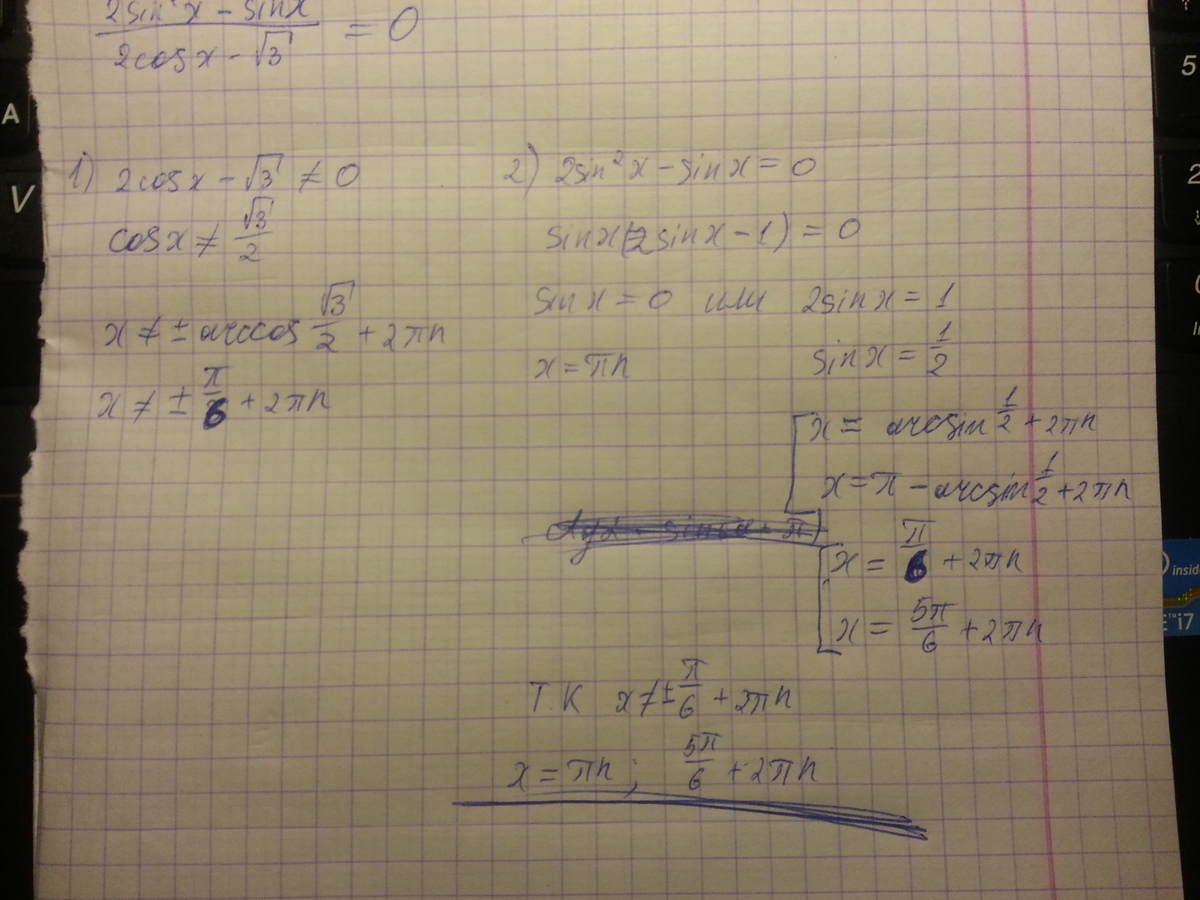 (2sin²x - sinx)/(2cosx - √3) = 0
1) 2cosx - √3 ≠ 0
cosx ≠ √3/2
x ≠ ± arccos √3/2 + 2πn
x ≠ ± π/6 + 2πn
2) 2sin²x - sinx = 0
sinx(2sinx - 1) = 0
sinx = 0 или 2sinx = 1
x = πn sinx = 1/2
[x = arcsin 1/2 + 2πn
x = π - arcsin 1/2 + 2πn
[x = π/6 + 2πn
x = 5π/6 + 2πn
Т.К x ≠ ± π/6 + 2πn
x = πn; 5π/6 + 2πn
A
V
5
2
inside
i7